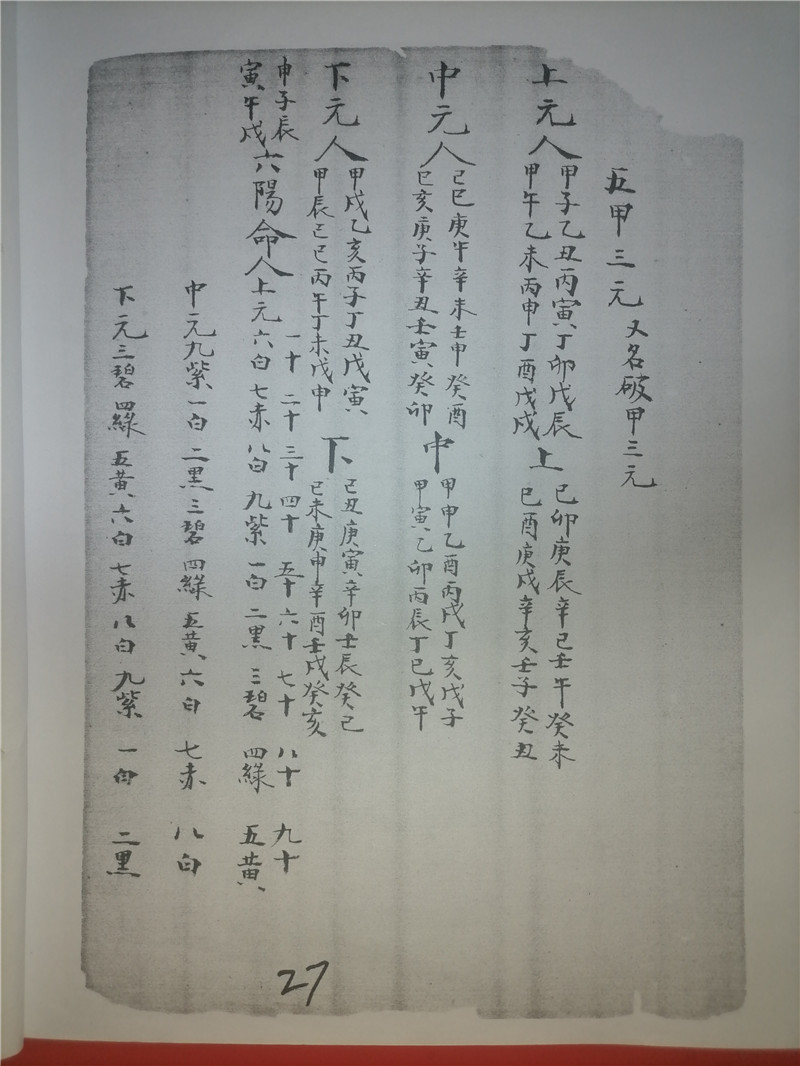 五甲三元 又名破甲三元
上元人 甲子乙丑丙寅丁卯戊辰 上 己卯庚辰辛己壬午癸未
甲午乙未丙申丁酉戊戌 己酉庚戌辛亥壬子癸丑
中元人 己巳庚午辛未壬申癸酉 中 甲申乙酉丙戌丁亥戊子
己亥庚子辛丑壬寅癸卯 甲寅乙卯丙辰丁巳戊午
下元人 甲戌乙亥丙子丁丑戊寅 下 己丑庚寅辛卯壬辰癸巳
甲辰乙巳丙午丁未戊申 己未庚申辛酉壬戌癸亥
申子辰
寅午戌 六陽命人
一十 二十 三十 四十 五十 六十 七十 八十 九十
上元六白 七赤 八白 九紫 一白 二黑 三碧 四綠 五黃
中元九紫 一白 二黑 三碧 四綠 五黃 六白 七赤 八白
下元三碧 四綠 五黃 六白 七赤 八白 九紫 一白 二黑
27